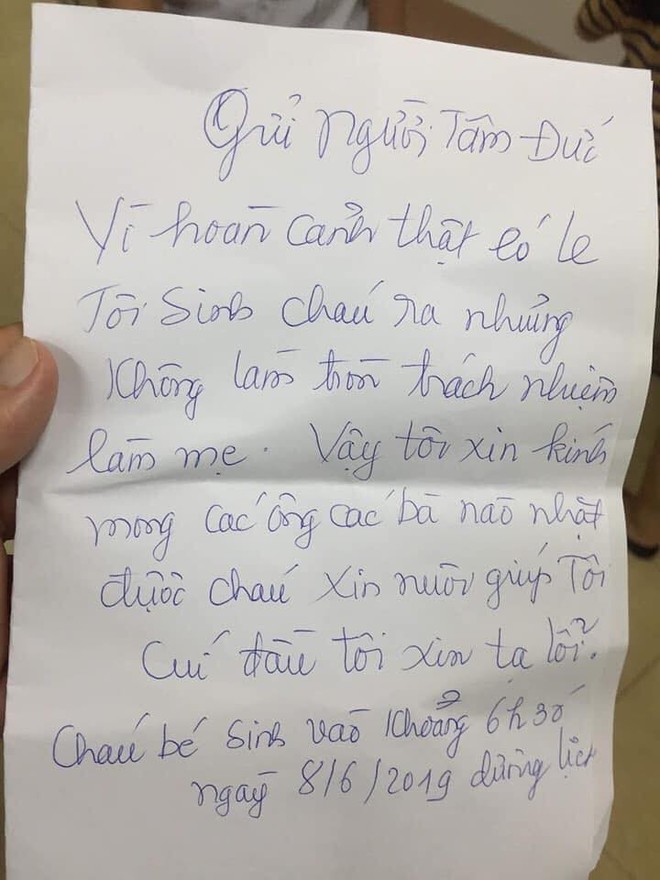 Gửi Người Tâm Đức
Vì hoàn cảnh thật éo le
Tôi sinh cháu ra nhưng
không làm tròn trách nhiệm
làm mẹ. Vậy tôi xin kính
mong các ông các bà nào nhặt
được cháu xin nuôi giúp Tôi
Cúi đầu tôi xin tạ lỗi.
Cháu bé sinh vào khoảng 6h30
ngày 8/6/2019 dương lịch